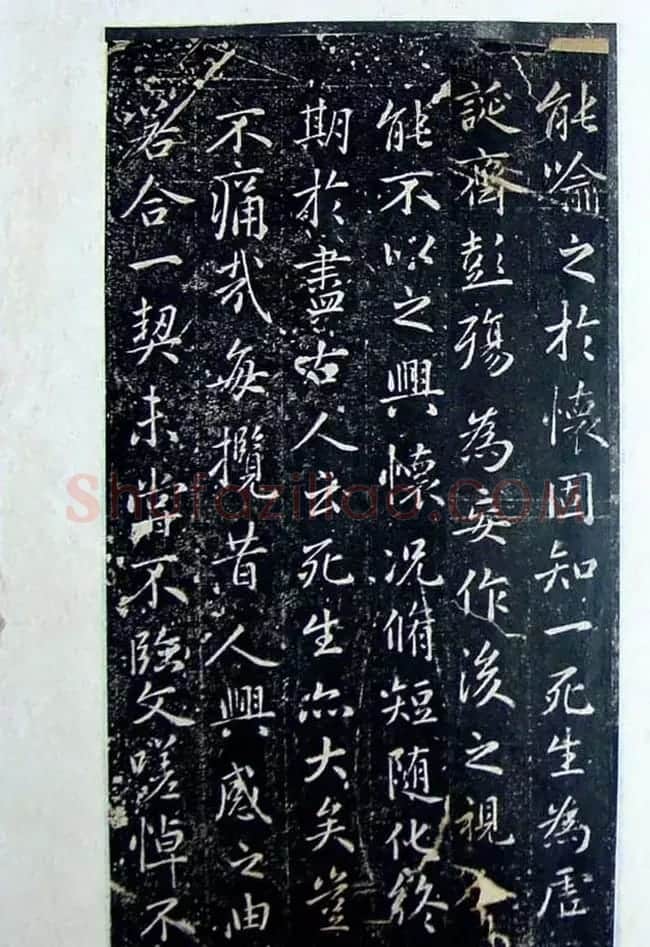 能喻之於懷固知一死生為虛
誕齊彭殤為妄作後之視
能不以之興懷況脩短随化終
期於盡古人云死生亦大矣豈
不痛哉每攬昔人興感之由
若合一契未嘗不臨文嗟悼不
Shufaziliao.COM